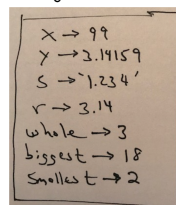 X → 99
y → 3.14159
S → '1.234'
r → 3.14
whole → 3
biggest → 18
Smallest → 2